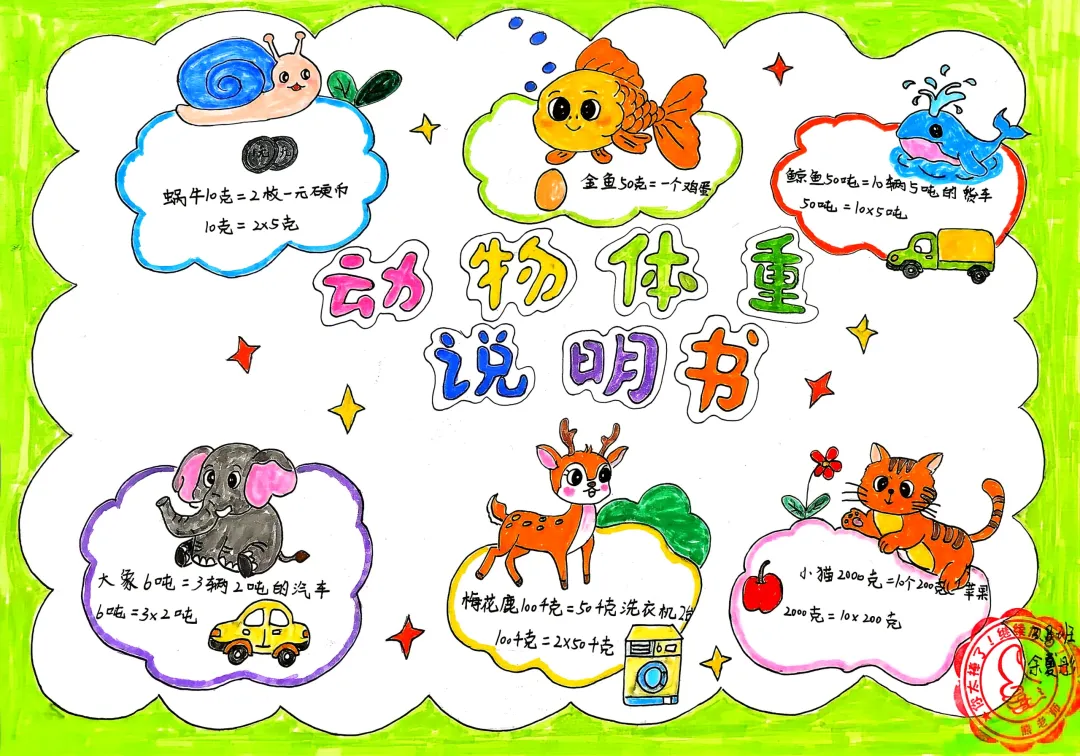 蜗牛10克=2枚一元硬币
10克=2x5克
金鱼50克=一个鸡蛋
鲸鱼50吨=10辆5吨的货车
50吨=10x5吨
动物体重
说明书
大象6吨=3辆2吨的汽车
6吨=3x2吨
梅花鹿100千克=50千克洗衣机2台
100千克=2x50千克
小猫2000克=10个200克苹果
2000克=10x200克
你太棒了！继续
熊老师